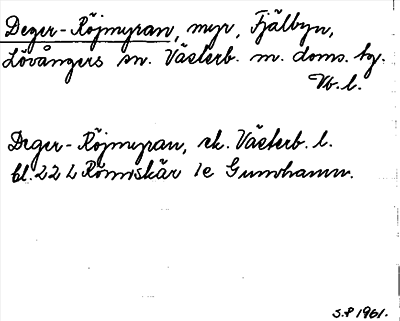 Deger-Röjmyran, myr, Fjälbyn,
Lövångers sn. Västerb. m. doms. tg.
Vb. l.
Deger-Röjmyran, ek. Västerb. l.
bl. 22 L Rönnskär 1e Gunnshamn.
S.P 1961.